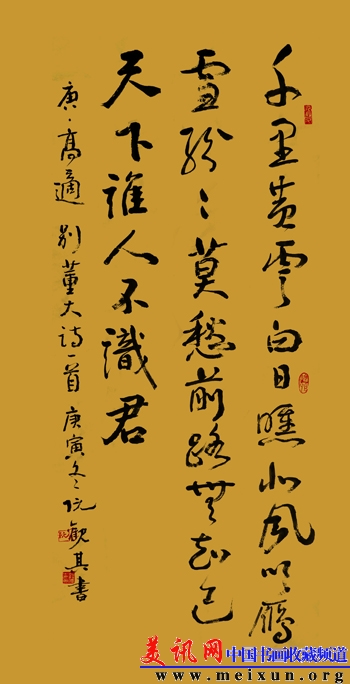 千里黄雲白日曛北风吹雁
雪紛々莫愁前路無知己
天下誰人不識君
唐·高適 别董大诗一首 庚寅冬 阮觀其書
美讯网
中国书画收藏频道
www.meixun.org